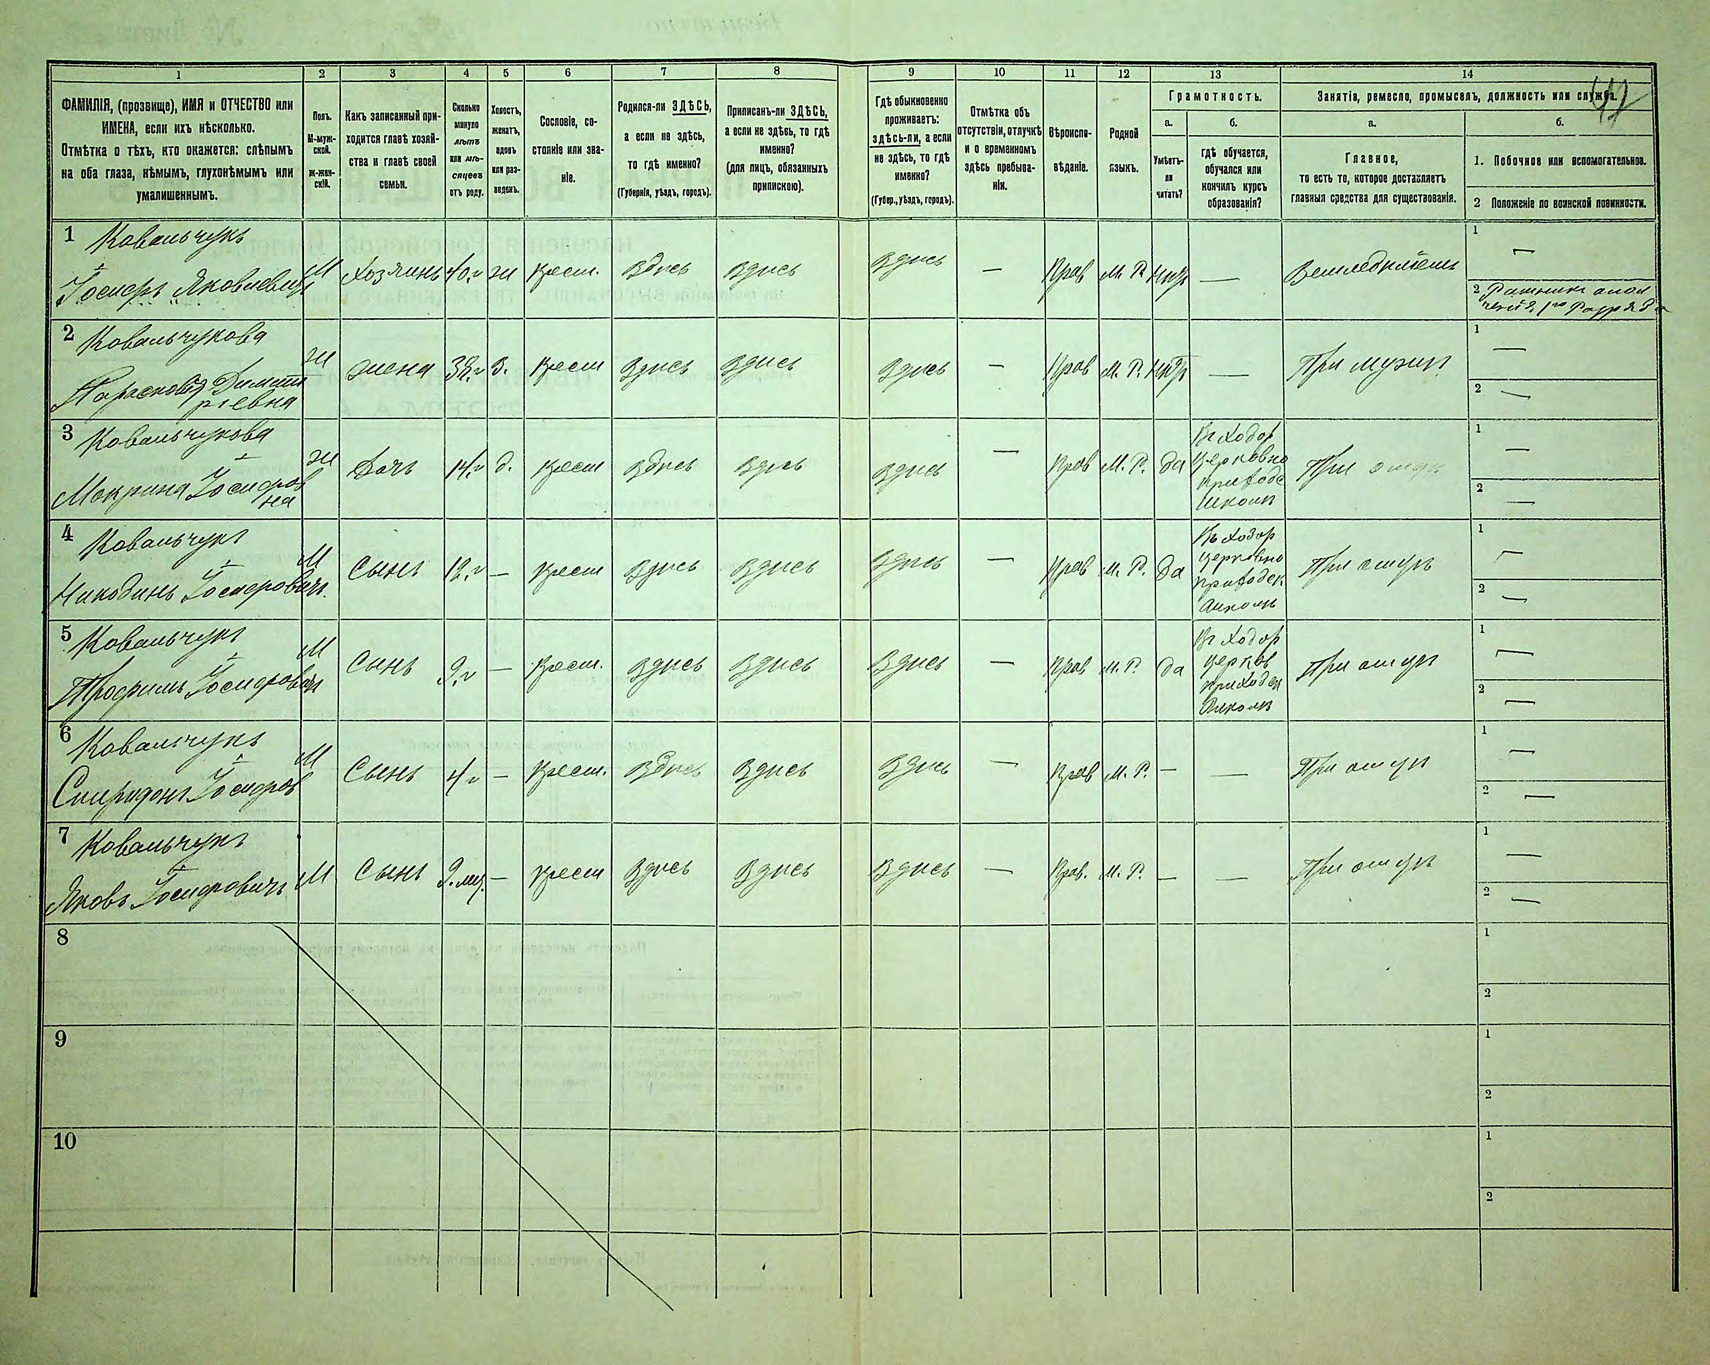 42
1 2 3 4 5 6 7 8 9 10 11 12 13 14
ФАМИЛІЯ, (прозвище), ИМЯ и ОТЧЕСТВО или
ИМЕНА, если ихъ нѣсколько.
Отмѣтка о тѣхъ, кто окажется: слѣпымъ
на оба глаза, нѣмымъ, глухонѣмымъ или
умалишеннымъ.
Полъ.
М-муж-
ской.
ж-жен-
скій.
Какъ записанный при-
ходится главѣ хозяй-
ства и главѣ своей
семьи.
Сколько
минуло
лѣтъ
или мѣ-
сяцевъ
отъ роду.
Холостъ,
женатъ,
вдовъ
или раз-
веденъ.
Сословіе, со-
стояніе или зва-
ніе.
Родился-ли ЗДѢСЬ,
а если не здѣсь,
то гдѣ именно?
(Губернія, уѣздъ, городъ).
Приписанъ-ли ЗДѢСЬ,
а если не здѣсь, то гдѣ
именно?
(для лицъ, обязанныхъ
припискою).
Гдѣ обыкновенно
проживаетъ:
здѣсь-ли, а если
не здѣсь, то гдѣ
именно?
(Губер., уѣздъ, городъ).
Отмѣтка объ
отсутствіи, отлучкѣ
и о временномъ
здѣсь пребыва-
ніи.
Вѣроиспо-
вѣданіе.
Родной
языкъ.
Грамотность.
а.
Умѣетъ-
ли
читать?
б.
гдѣ обучается,
обучался или
кончилъ курсъ
образованія?
Занятіе, ремесло, промыселъ, должность или служба.
а.
Главное,
то есть то, которое доставляетъ
главныя средства для существованія.
б.
1. Побочное или вспомогательное.
2 Положеніе по воинской повинности.
1 Ковальчукъ
Іосифъ Яковлевичъ
М Хозяинъ 40.г ж Крест. Здѣсь Здѣсь Здѣсь — Прав М. Р. нѣтъ — Земледѣлецъ
1 —
2 Ратникъ опол
2 Ковальчукова
Парасковія Димитт
ріевна
ж жена 38.г З. Крест Здѣсь Здѣсь Здѣсь — Прав М. Р. нѣтъ — При мужѣ
1 —
2 —
3 Ковальчукова
Макрина Іосифов
на
ж Дочь 14.г д. Крест Здѣсь Здѣсь Здѣсь — Прав М. Р. да
Въ Ходор
церковно
приходс
школѣ
При отцѣ
1 —
2 —
4 Ковальчукъ
Никодимъ Іосифовичъ.
М Сынъ 12.г — Крест Здѣсь Здѣсь Здѣсь — Прав М. Р. да
Въ Ходор
церковно
приходск
школѣ
При отцѣ
1 —
2 —
5 Ковальчукъ
Трофимъ Іосифовичъ
М Сынъ 9.г — Крест. Здѣсь Здѣсь Здѣсь — Прав М. Р. да
Въ Ходор
церков
приходск
школѣ
При отцѣ
1 —
2 —
6 Ковальчукъ
Спиридонъ Іосифов
М Сынъ 4.г — Крест. Здѣсь Здѣсь Здѣсь — Прав М. Р. — — При отцѣ
1 —
2 —
7 Ковальчукъ
Яковъ Іосифовичъ
М Сынъ 9.мѣ. — Крест Здѣсь Здѣсь Здѣсь — Прав. М. Р. — — При отцѣ
1 —
2 —
8
1
2
9
1
2
10
1
2